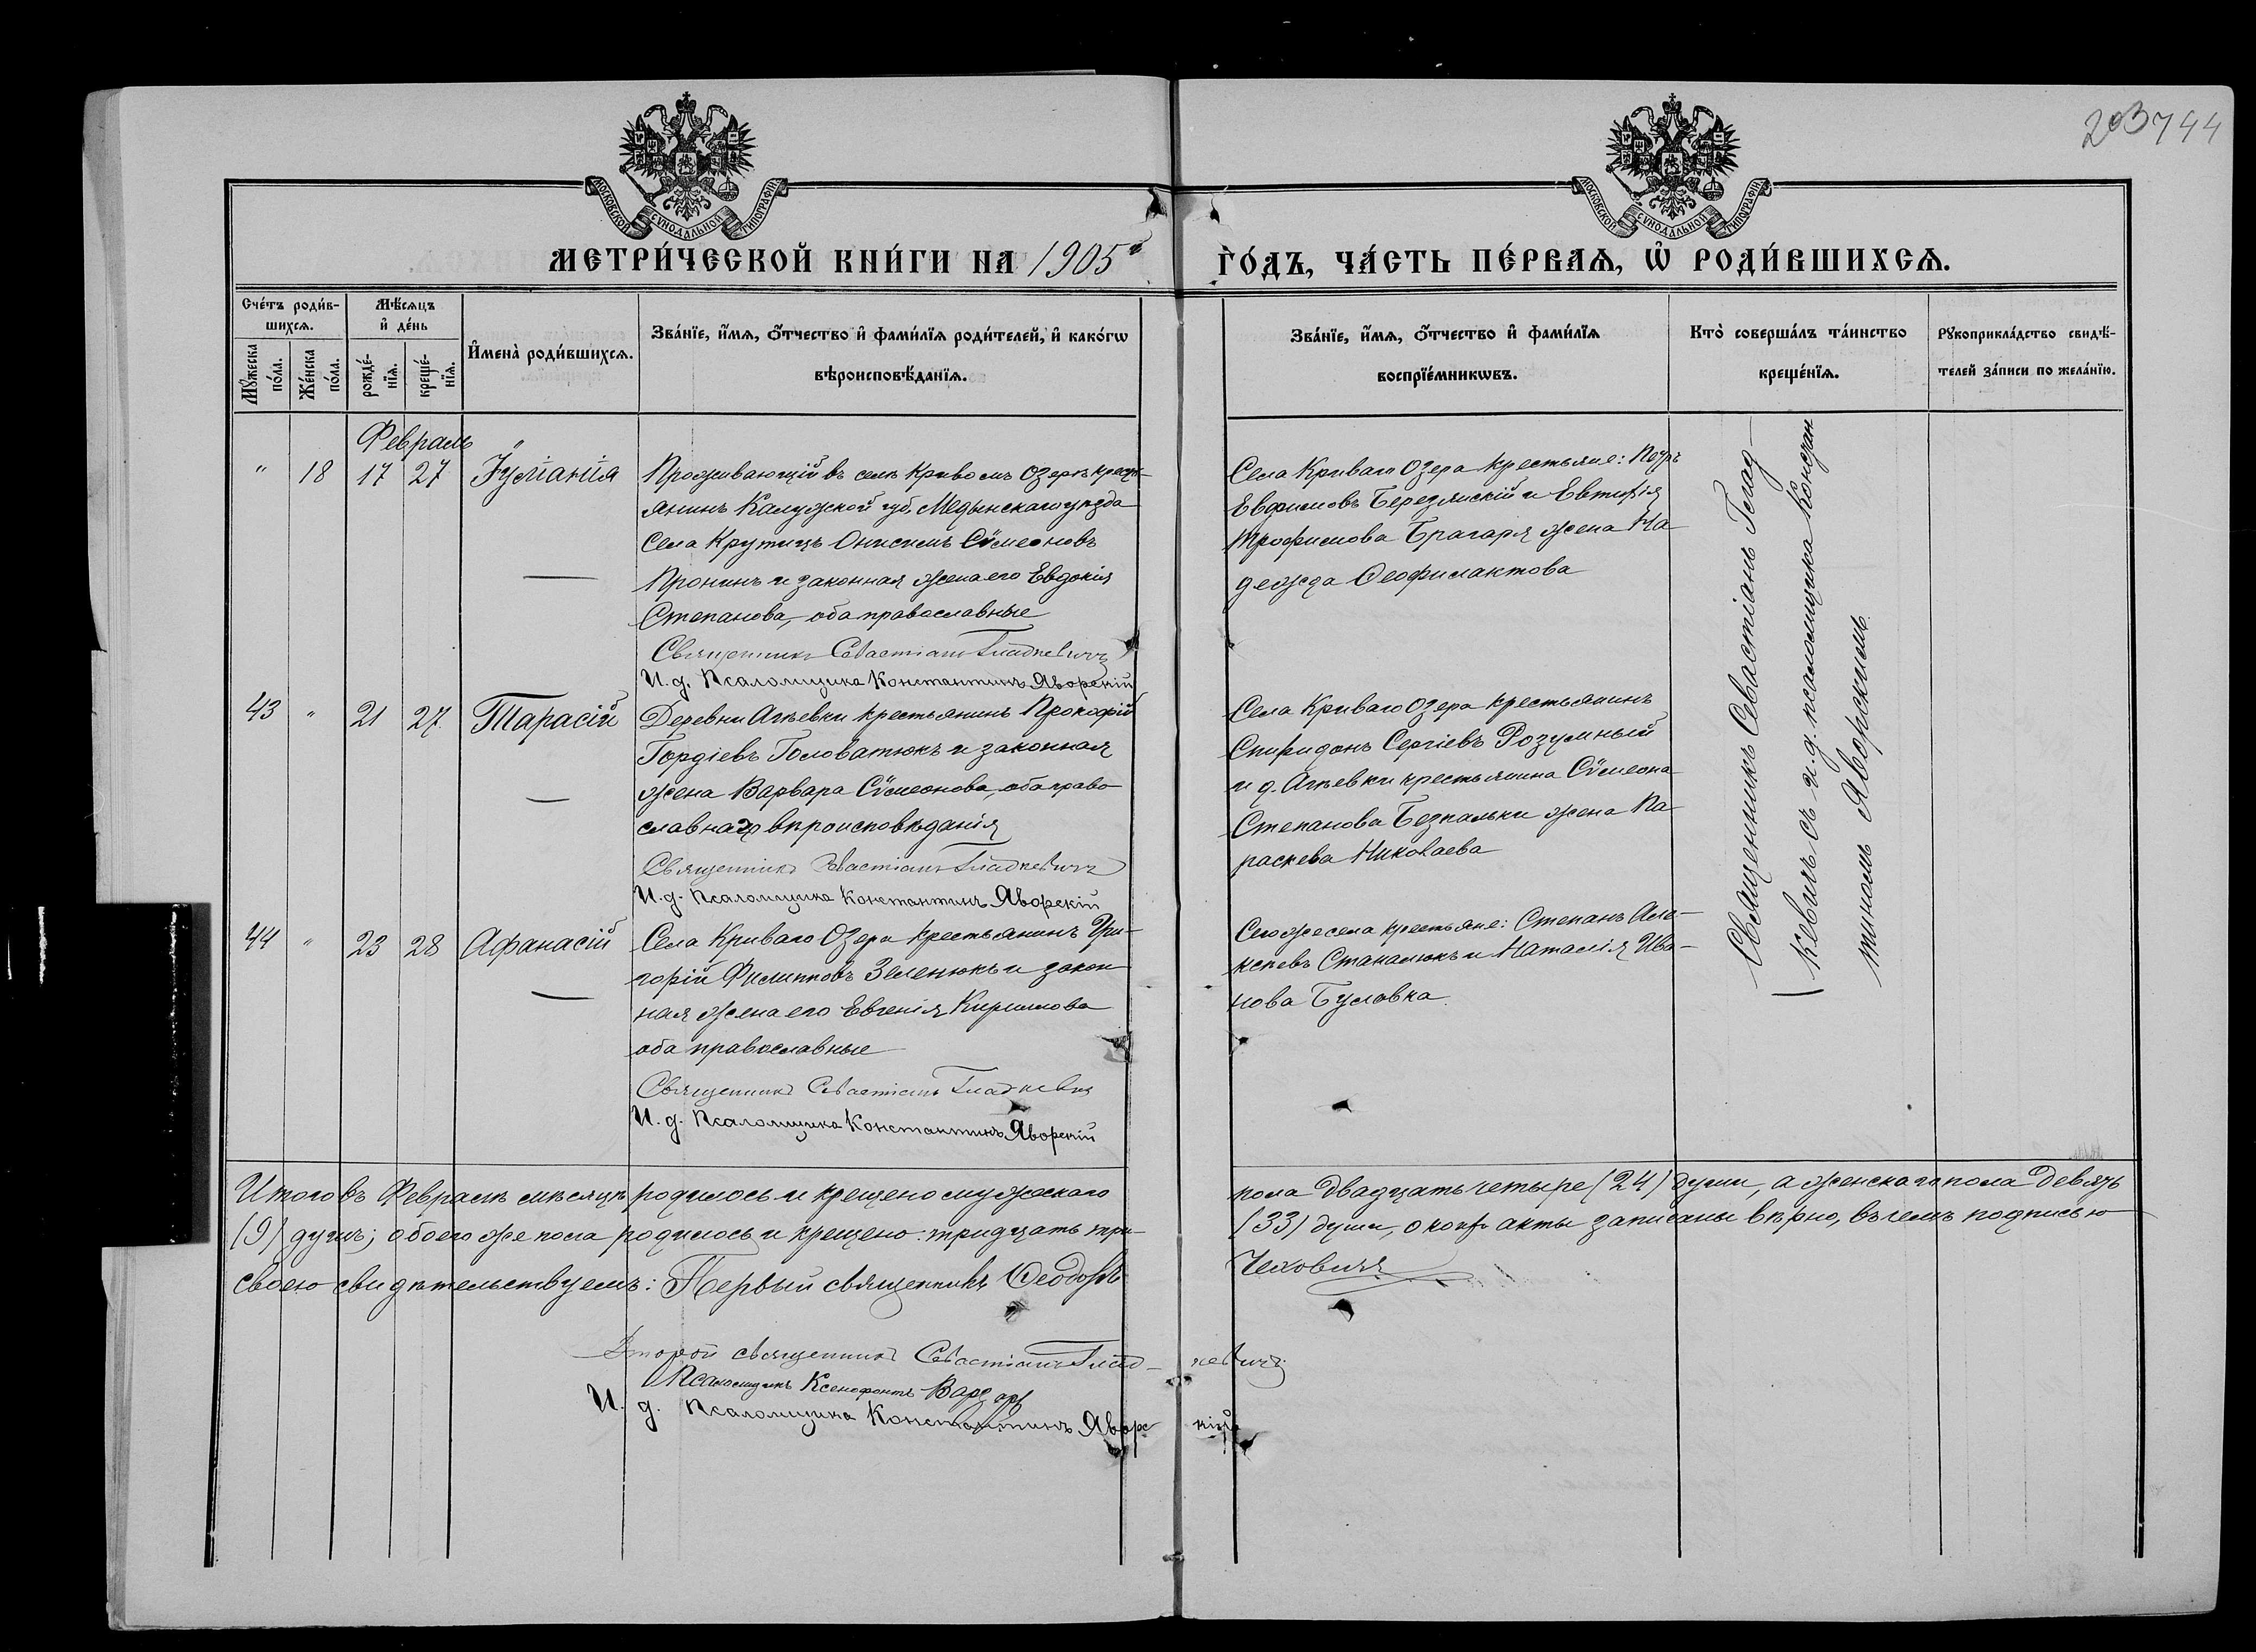 203 744
МОСКОВСКОЙ СѴНОДАЛЬНОЙ ТИПОГРАФІИ
МОСКОВСКОЙ СѴНОДАЛЬНОЙ ТИПОГРАФІИ
МЕТРИ́ЧЕСКОЙ КНИ́ГИ НА 1905й
ГО́ДЪ, ЧА́СТЬ ПЕ́РВАѦ, Ѡ҆ РОДИ́ВШИХСѦ.
Сче́тъ роди́в-
шихсѧ.
Мꙋ́жеска по́ла.
Же́нска по́ла.
Мѣ́сѧцъ
и҆ де́нь
рожде́-
нїѧ.
креще́-
нїѧ.
И҆мена̀ роди́вшихсѧ.
Зва́нїе, и҆́мѧ, ѻ҆́тчество и҆ фами́лїѧ роди́телей, и҆ како́гѡ
вѣроисповѣ́данїѧ.
Зва́нїе, и҆́мѧ, ѻ҆́тчество и҆ фами́лїѧ
воспрїе́мникѡвъ.
Кто̀ соверша́лъ та́инство
креще́нїѧ.
Рꙋкоприкла́дство свидѣ́-
телей за́писи по жела́нїю.
Февраль
" 18 17 27 Іуліанія
Проживающій въ селѣ Кривомъ Озерѣ кресть-
янинъ Калужской губ. Медынскаго уѣзда
Села Крутицъ Онисимъ Сѵмеоновъ
Пронинъ и законная жена его Евдокія
Степанова, оба православные
Священникъ Севастіанъ Гладкевичъ
И. д. Псаломщика Константинъ Яворскій
Села Криваго Озера крестьяне: Петръ
Евфимовъ Березянскій и Евтифія
Трофимова Брагаря жена На
дежда Ѳеофилактова
43 " 21 27 Тарасій
Деревни Агѣевки крестьянинъ Прокофій
Гордіевъ Головатюкъ и законная
жена Варвара Сѵмеонова, оба право
славнаго вѣроисповѣданія
Священникъ Севастіанъ Гладкевичъ
И. д. Псаломщика Константинъ Яворскій
Села Криваго Озера крестьянинъ
Спиридонъ Сергіевъ Розумный
и д. Агѣевки крестьянина Сѵмеона
Степанова Безпальки жена Па
раскева Николаева
44 " 23 28 Афанасій
Села Криваго Озера крестьянинъ Гри-
горій Филипповъ Зеленюкъ и закон
ная жена его Евгенія Кирилова
оба православные
Священникъ Севастіанъ Гладкевичъ
И. д. Псаломщика Константинъ Яворскій
Сего же села крестьяне: Степанъ Але-
ксѣевъ Станалюкъ и Наталія Ива-
нова Буловка
Священникъ Севастіанъ Глад-
кевичъ съ и. д. псаломщика Констан
тиномъ Яворскимъ
Итого въ Февралѣ мѣсяцѣ родилось и крещено мужескаго
пола двадцать четыре (24) души, а женскаго пола девять
(9) душъ; обоего же пола родилось и крещено тридцать три
(33) души, о коихъ акты записаны вѣрно, въ чемъ подписью
своею свидѣтельствуемъ: Первый священникъ Ѳеодоръ
Чехович
Второй священникъ Севастіанъ Гладкевичъ
Псаломщикъ Ксенофонтъ
И. д. Псаломщика Константинъ Яворскій